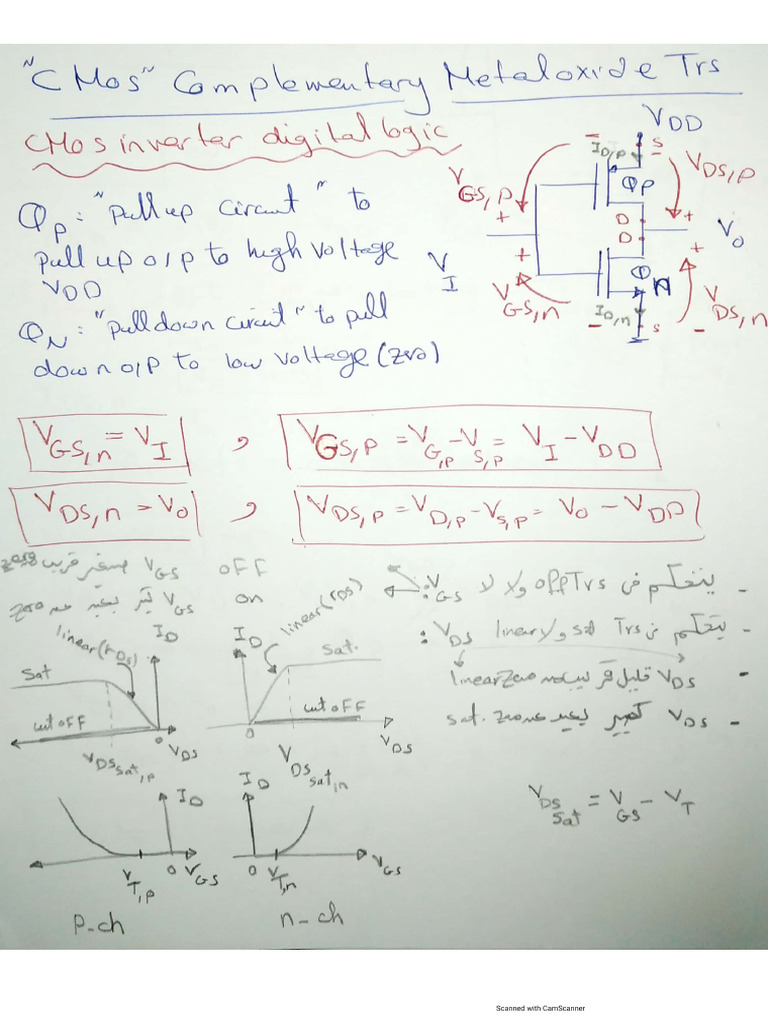 "CMos" Complementary Metaloxide Trs
CMos inverter digital logic
Qp: "Pull up Circuit" to
pull up o/p to high voltage
VDD
QN: "Pull down circuit" to pull
down o/p to low voltage (zero)
VDD
S
ID,p
VGS,p
VDS,p
QP
D
D
Vo
VI
QN
VGS,n
ID,n
VDS,n
S
VGS,n = VI , VGS,p = VG,p - VS,p = VI - VDD
VDS,n = Vo , VDS,p = VD,p - VS,p = Vo - VDD
VGS صغير قريب zero OFF
VGS كبير بعيد عن zero on
VGS: يتحكم فى Trs off ولا لا -
VDS: يتحكم فى Trs sat ولا linear -
VDS قليل قريب من zero linear -
VDS كبير بعيد عن zero sat. -
VDS sat = VGS - VT
ID
linear (rDS)
Sat
cut off
0
VDS
VDS sat,p
ID
linear (rDS)
Sat.
cut off
0
VDS
VDS sat,n
ID
VT,p
0
VGS
P-ch
ID
0
VT,n
VGS
n-ch
Scanned with CamScanner